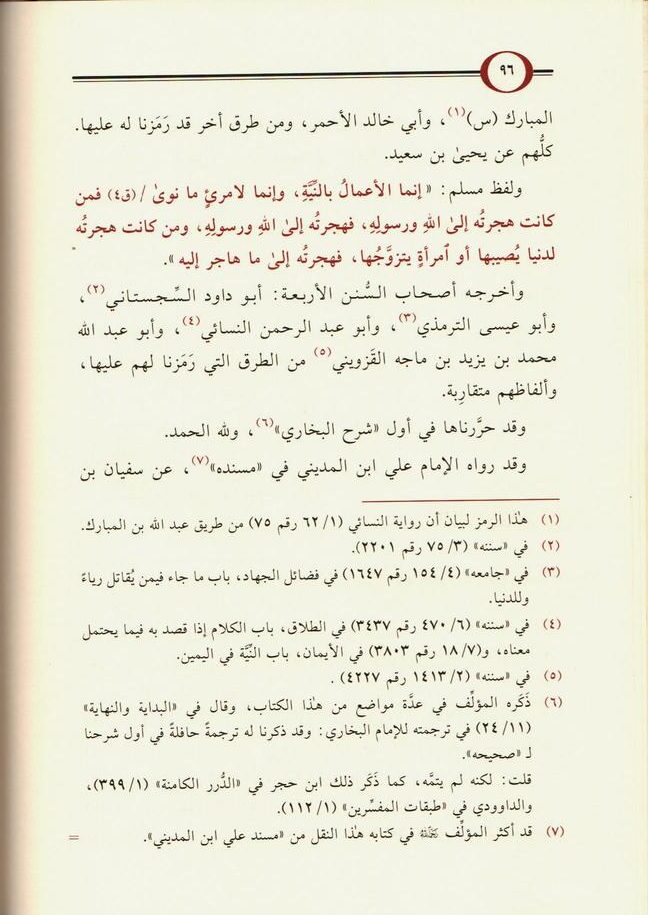 ٩٦
المبارك (س)(١)، وأبي خالد الأحمر، ومن طرق أخر قد رَمَزنا له عليها.
كلُّهم عن يحيىٰ بن سعيد.
ولفظ مسلم: «إنما الأعمالُ بالنِّيَّةِ، وإنما لامرئٍ ما نوىٰ /(ق٤) فمن
كانت هجرتُه إلىٰ اللهِ ورسولِهِ، فهجرتُه إلىٰ اللهِ ورسولِهِ، ومن كانت هجرتُه
لدنيا يُصيبها أو ٱمرأةٍ يتزوَّجُها، فهجرتُه إلىٰ ما هاجر إليه».
وأخرجه أصحاب السُّنن الأربعة: أبو داود السِّجستاني(٢)،
وأبو عيسى الترمذي(٣)، وأبو عبد الرحمن النسائي(٤)، وأبو عبد الله
محمد بن يزيد بن ماجه القَزويني(٥) من الطرق التي رَمَزنا لهم عليها،
وألفاظهم متقارِبة.
وقد حرَّرناها في أول «شرح البخاري»(٦)، ولله الحمد.
وقد رواه الإمام علي ابن المديني في «مسنده»(٧)، عن سفيان بن
(١) هٰذا الرمز لبيان أن رواية النسائي (١/ ٦٢ رقم ٧٥) من طريق عبد الله بن المبارك.
(٢) في «سننه» (٣/ ٧٥ رقم ٢٢٠١).
(٣) في «جامعه» (٤/ ١٥٤ رقم ١٦٤٧) في فضائل الجهاد، باب ما جاء فيمن يُقاتل رياءً
وللدنيا.
(٤) في «سننه» (٦/ ٤٧٠ رقم ٣٤٣٧) في الطلاق، باب الكلام إذا قصد به فيما يحتمل
معناه، و(٧/ ١٨ رقم ٣٨٠٣) في الأيمان، باب النِّيَّة في اليمين.
(٥) في «سننه» (٢/ ١٤١٣ رقم ٤٢٢٧) .
(٦) ذَكَره المؤلِّف في عدَّة مواضع من هٰذا الكتاب، وقال في «البداية والنهاية»
(١١/ ٢٤) في ترجمته للإمام البخاري: وقد ذكرنا له ترجمةً حافلةً في أول شرحنا
لـ «صحيحه».
قلت: لكنه لم يتمَّه، كما ذَكَر ذلك ابن حجر في «الدُّرر الكامنة» (١/ ٣٩٩)،
والداوودي في «طبقات المفسِّرين» (١/ ١١٢).
(٧) قد أكثر المؤلِّف رحمه الله في كتابه هٰذا النقل من «مسند علي ابن المديني». =